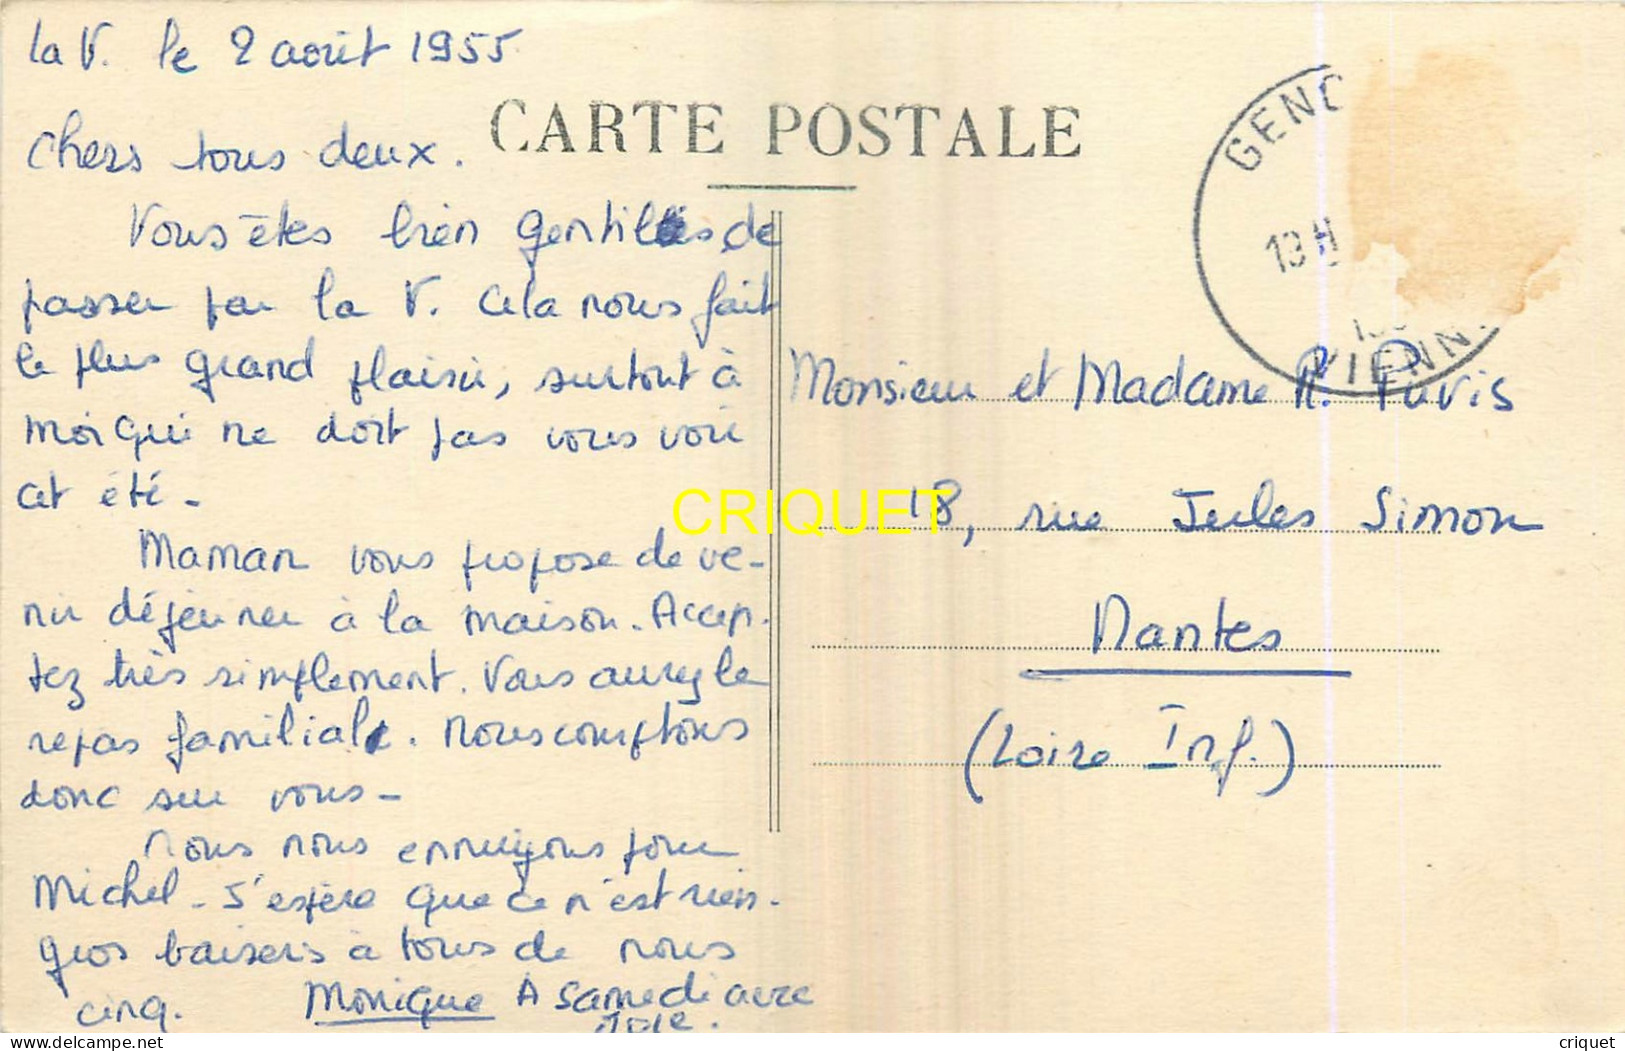 la V. le 2 août 1955
CARTE POSTALE
Chers tous deux.
Vous êtes bien gentils de
passer par la V. Cela nous fait
le plus grand plaisir, surtout à
moi qui ne doit pas vous voir
cet été -
Maman vous propose de ve-
nir déjeuner à la maison. Accep-
tez très simplement. Vous aurez le
repas familial. Nous comptons
donc sur vous -
Nous nous ennuyons pour
Michel - J'espère que ce n'est rien.
Gros baisers à tous de nous
cinq. Monique A samedi avec
joie.
GENC
19 H
VIENN
Monsieur et Madame R. Puvis
18, rue Jules Simon
Nantes
(Loire Inf.)
CRIQUET
criquet